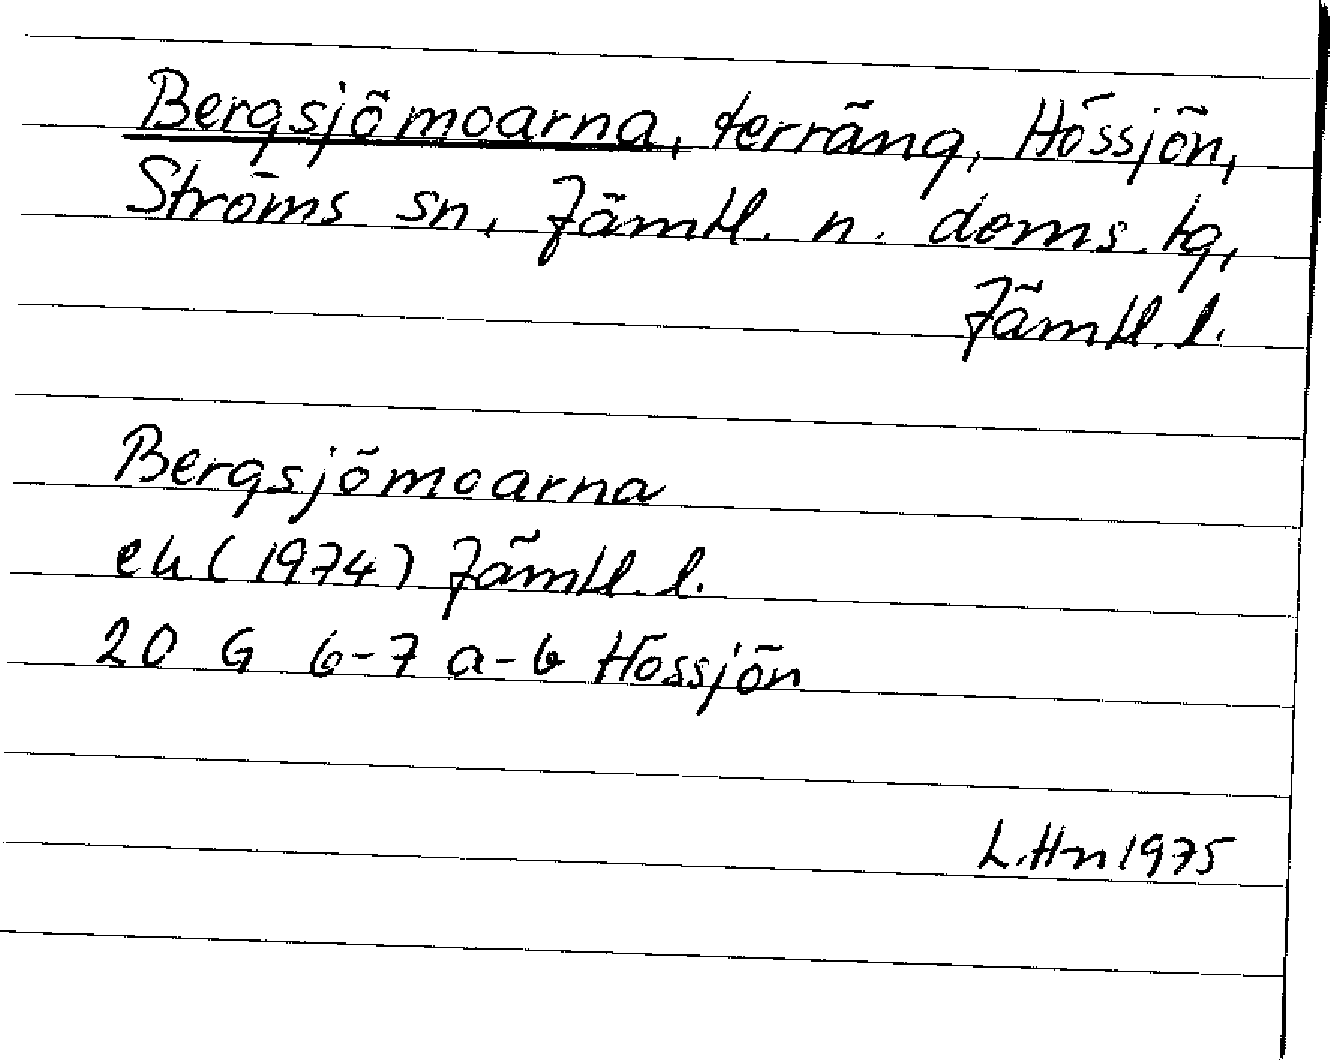 Bergsjömoarna, terräng, Hössjön,
Ströms sn, Jämtl. n. doms. tg,
Jämtl. l.
Bergsjömoarna
ek (1974) Jämtl. l.
20 G 6-7 a-b Hössjön
L. Hn 1975